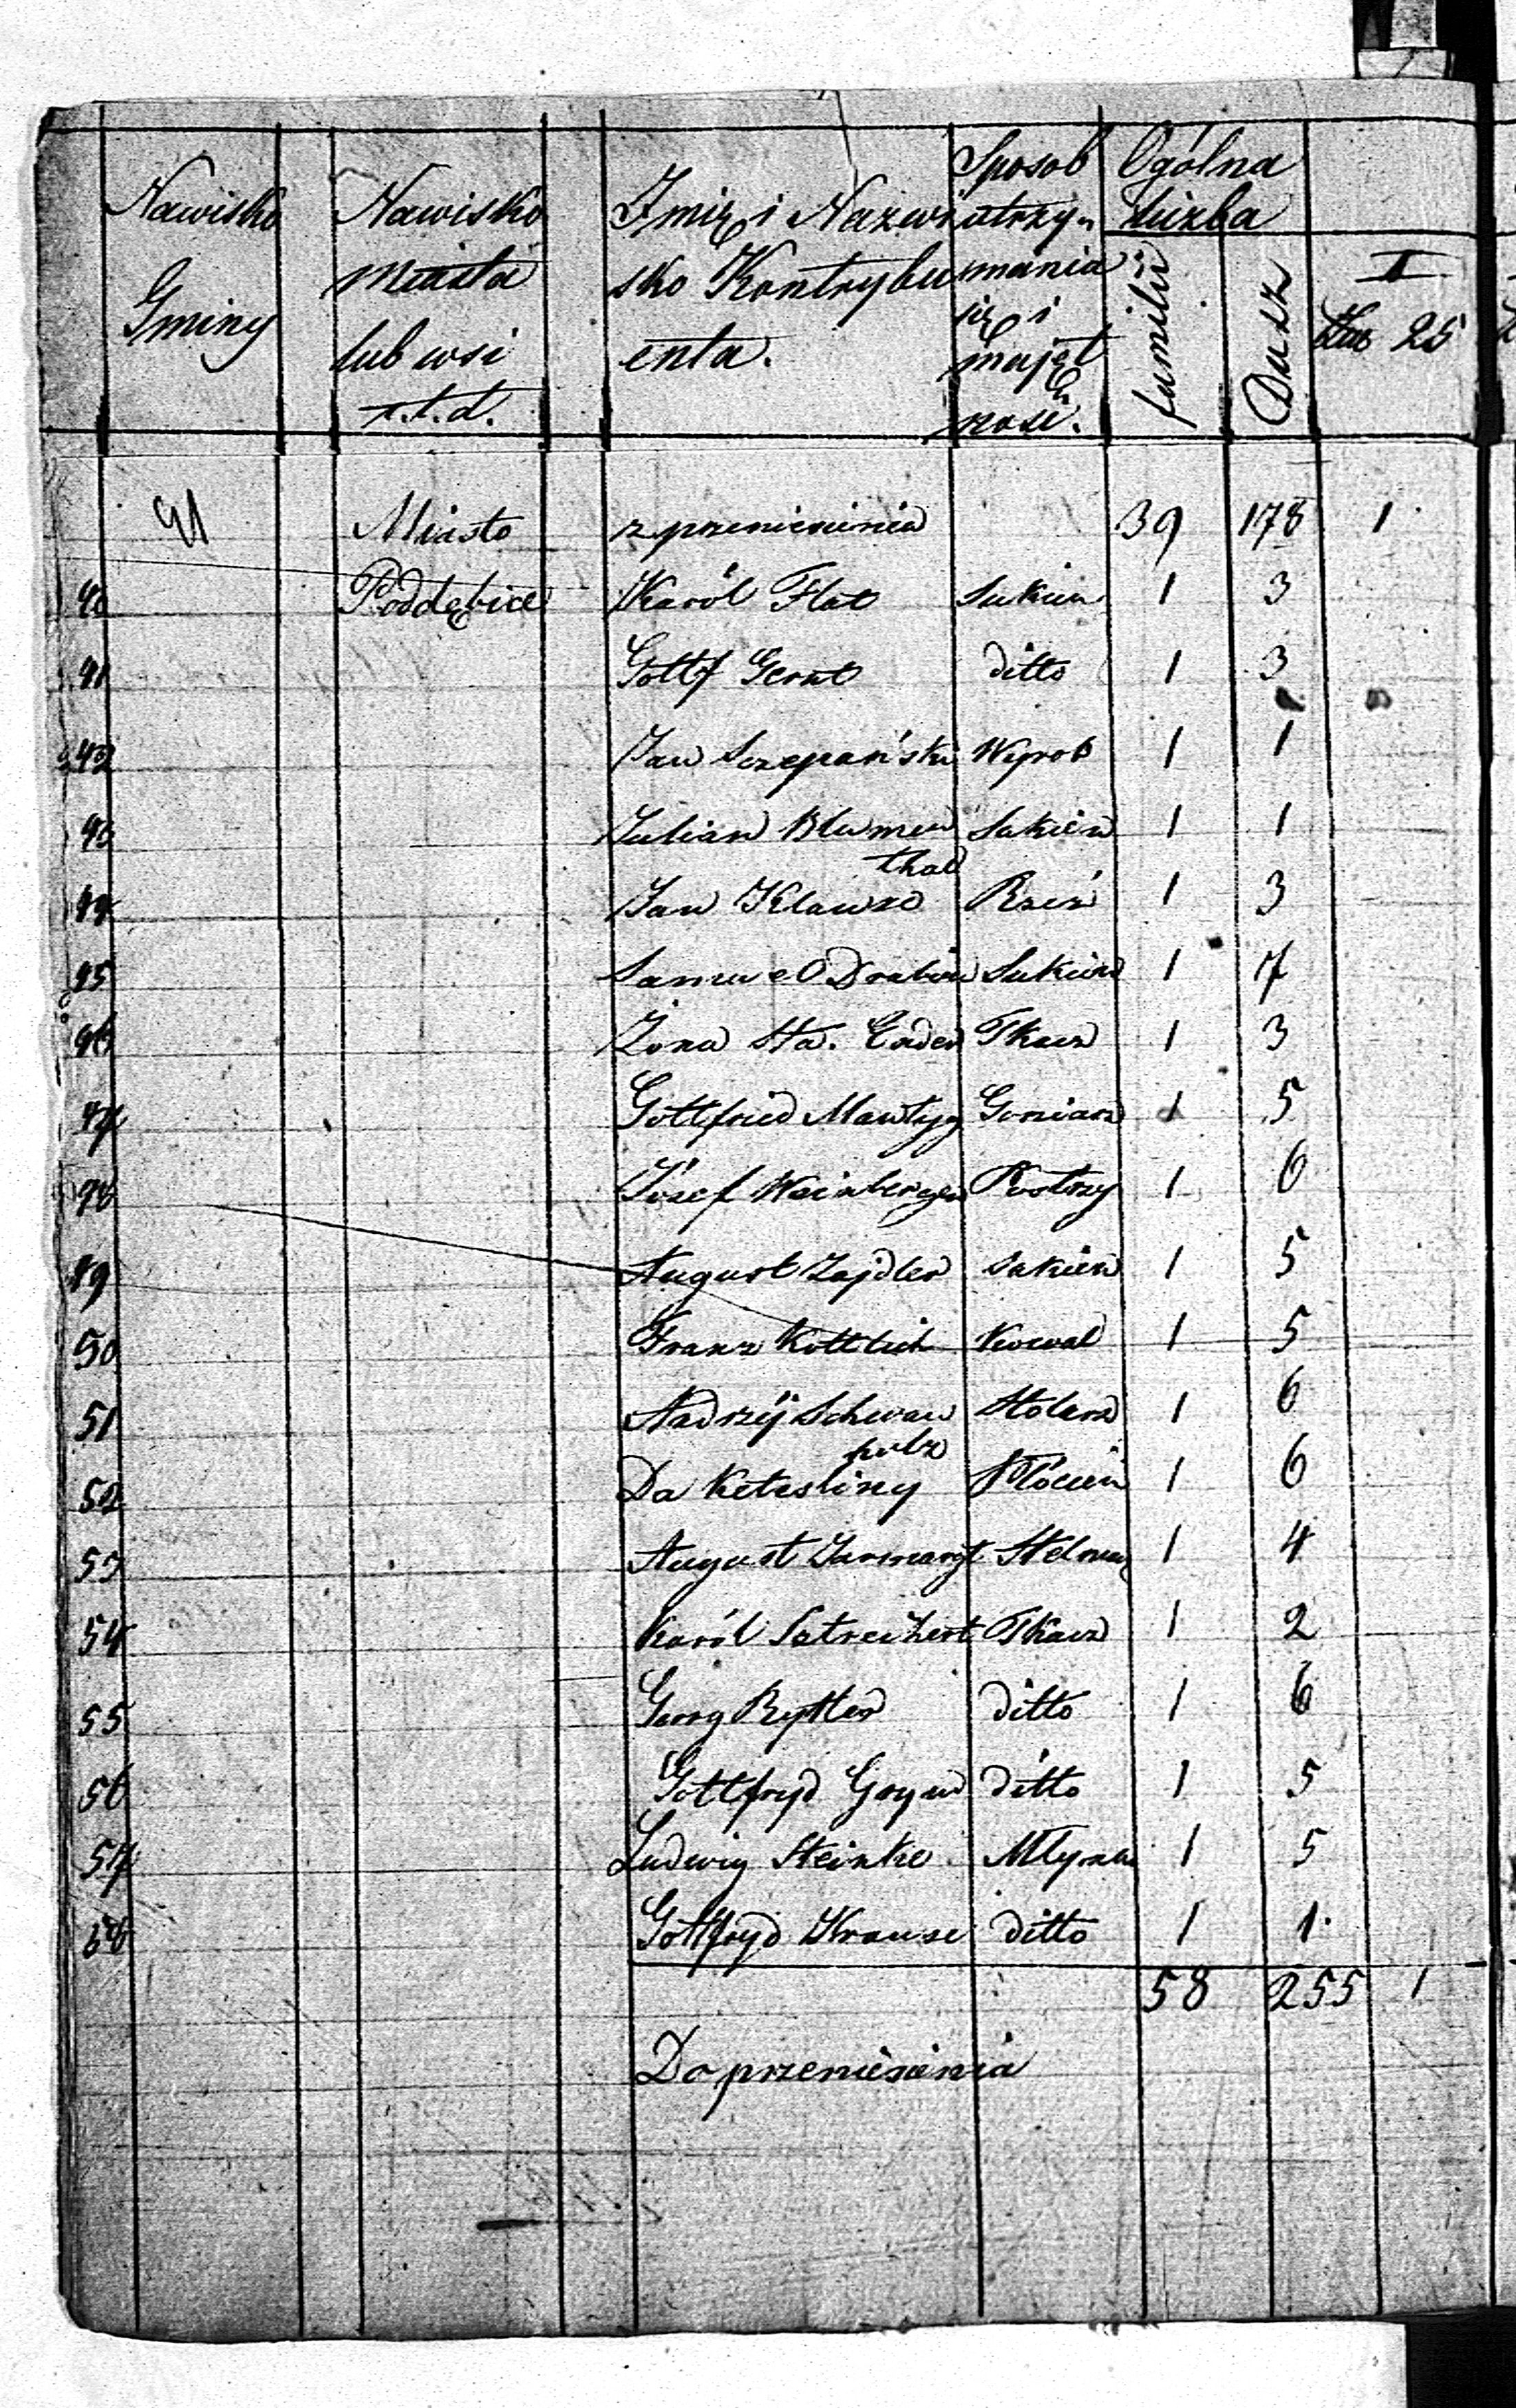 Nawisko Gminy
Nawisko Miasta lub wsi t.t.d.
Imię i Nazwisko Kontrybuenta.
Sposob utrzymania się i majętność.
Ogólna liczba
familii
Dusz
I
25
91 Miasto z przeniesienia 39 178 1
40 Poddębice Karól Flat Sukien 1 3
41 Gottf Gernt ditto 1 3
42 Jan Sczepański Wyrob 1 1
43 Julian Blumenthal Sukien 1 1
44 Jan Klauze Rzeź 1 3
45 Samuel Drabin Sukien 1 7
46 Żona Sta. Ender Tkacz 1 3
47 Gottfried Mantzyg Goniarz 1 5
48 Józef Weinberger Postrzy 1 6
49 August Zajdler Sukien 1 5
50 Franz Kottlich Kowal 1 5
51 Andrzéj Schwanpolz Stolarz 1 6
52 Da 1 6
53 August Jarmargt Stelmar 1 4
54 Karól Satreichert Tkacz 1 2
55 Georg Rytter ditto 1 6
56 Gottfryd Grynd ditto 1 5
57 Ludwig Steinke Młyna 1 5
58 Gottfryd Krause ditto 1 1
58 255 1
Do przeniesienia